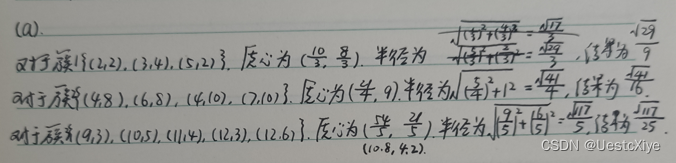 (a).
对于簇{(2,2), (3,4), (5,2)}. 质心为 (10/3, 8/3). 半径为 √((5/3)²+(2/3)²) = √29/3, 结果为 √29/9
对于簇{(4,8), (6,8), (4,10), (7,10)}. 质心为(21/4, 9). 半径为√((5/4)²+1²) = √41/4, 结果为 √41/16.
对于簇{(9,3), (10,5), (11,4), (12,3), (12,6)}. 质心为(54/5, 21/5). 半径为√((9/5)²+(6/5)²) = √117/5, 结果为 √117/25.
(10.8, 4.2).
CSDN @UestcXiye